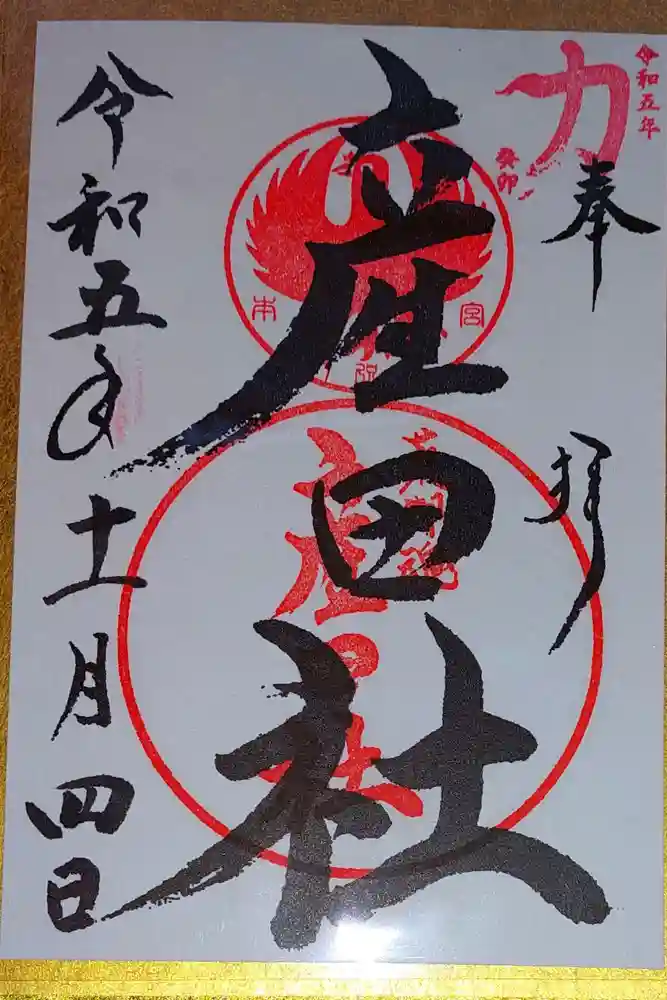 奉拝
令和五年
癸卯
力
座田社
本宮
座田社
令和五年十一月四日